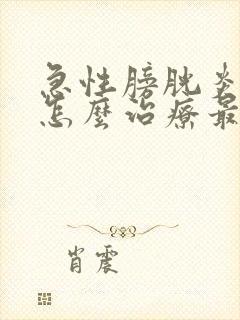 急性膀胱炎
怎麼治療最
肖震